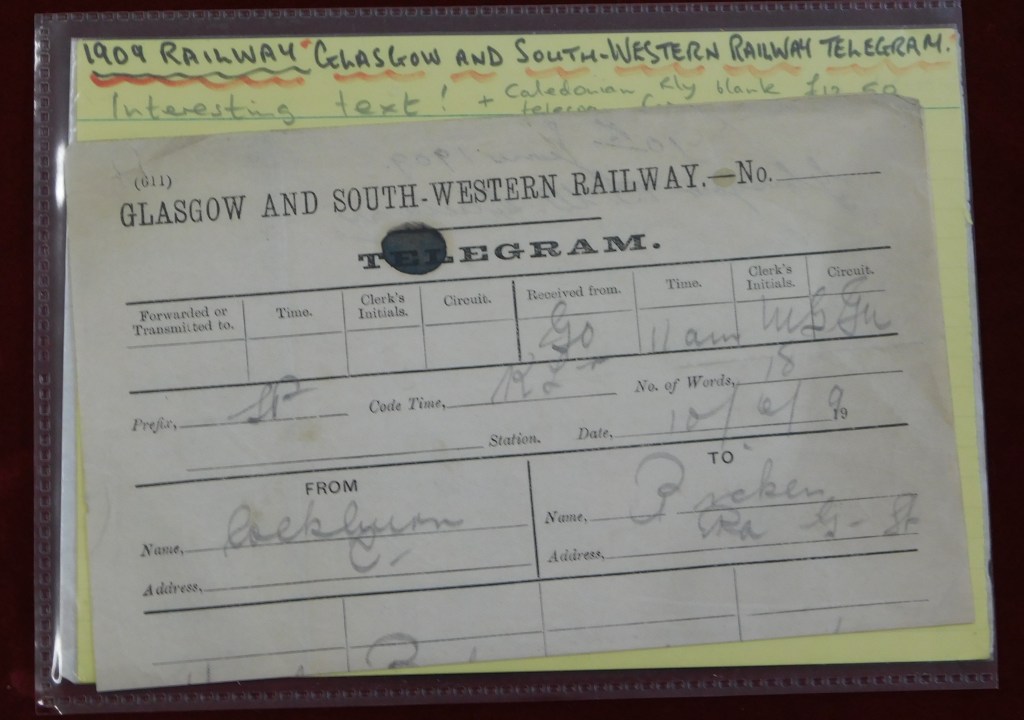 1909 RAILWAY GLASGOW AND SOUTH-WESTERN RAILWAY TELEGRAM.
Interesting text! + Caledonian Rly blank £12.50
(611)
GLASGOW AND SOUTH-WESTERN RAILWAY.—No.
TELEGRAM.
Forwarded or Transmitted to. Time. Clerk's Initials. Circuit. Received from. Time. Clerk's Initials. Circuit.
Go 11 am
Prefix, Code Time, No. of Words, 18
Station. Date, 10/6/ 19 9
FROM TO
Name, Cockburn Name,
Address, Address,